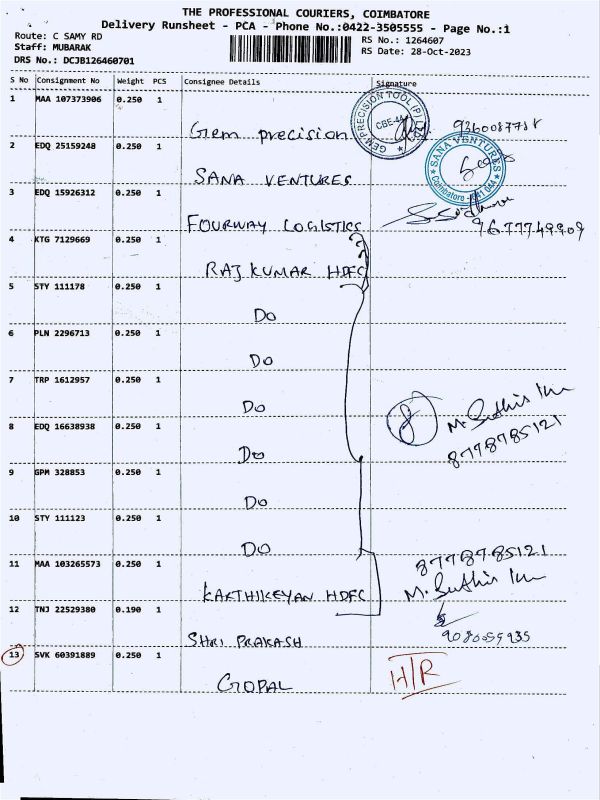 THE PROFESSIONAL COURIERS, COIMBATORE
Delivery Runsheet - PCA - Phone No.:0422-3505555 - Page No.:1
Route: C SAMY RD
RS No.: 1264607
Staff: MUBARAK
RS Date: 28-Oct-2023
DRS No.: DCJB126460701
S No Consignment No Weight PCS Consignee Details Signature
1 MAA 107373906 0.250 1
Gem precision
GEM PRECISION TOOL (P) CBE-44
2 EDQ 25159248 0.250 1
SANA VENTURES
SANA VENTURES Coimbatore - 641 044
3 EDQ 15926312 0.250 1
FOURWAY LOGISTICS 9677749909
4 KTG 7129669 0.250 1
RAJ KUMAR HDFC
5 STY 111178 0.250 1
Do
6 PLN 2296713 0.250 1
Do
7 TRP 1612957 0.250 1
Do
8 EDQ 16638938 0.250 1
Do 8778785121
9 GPM 328853 0.250 1
Do
10 STY 111123 0.250 1
Do 8778785121
11 MAA 103265573 0.250 1
KARTHIKEYAN HDFC
12 TNJ 22529380 0.190 1
SHRI PRAKASH
13 SVK 60391889 0.250 1
GOPAL H/R